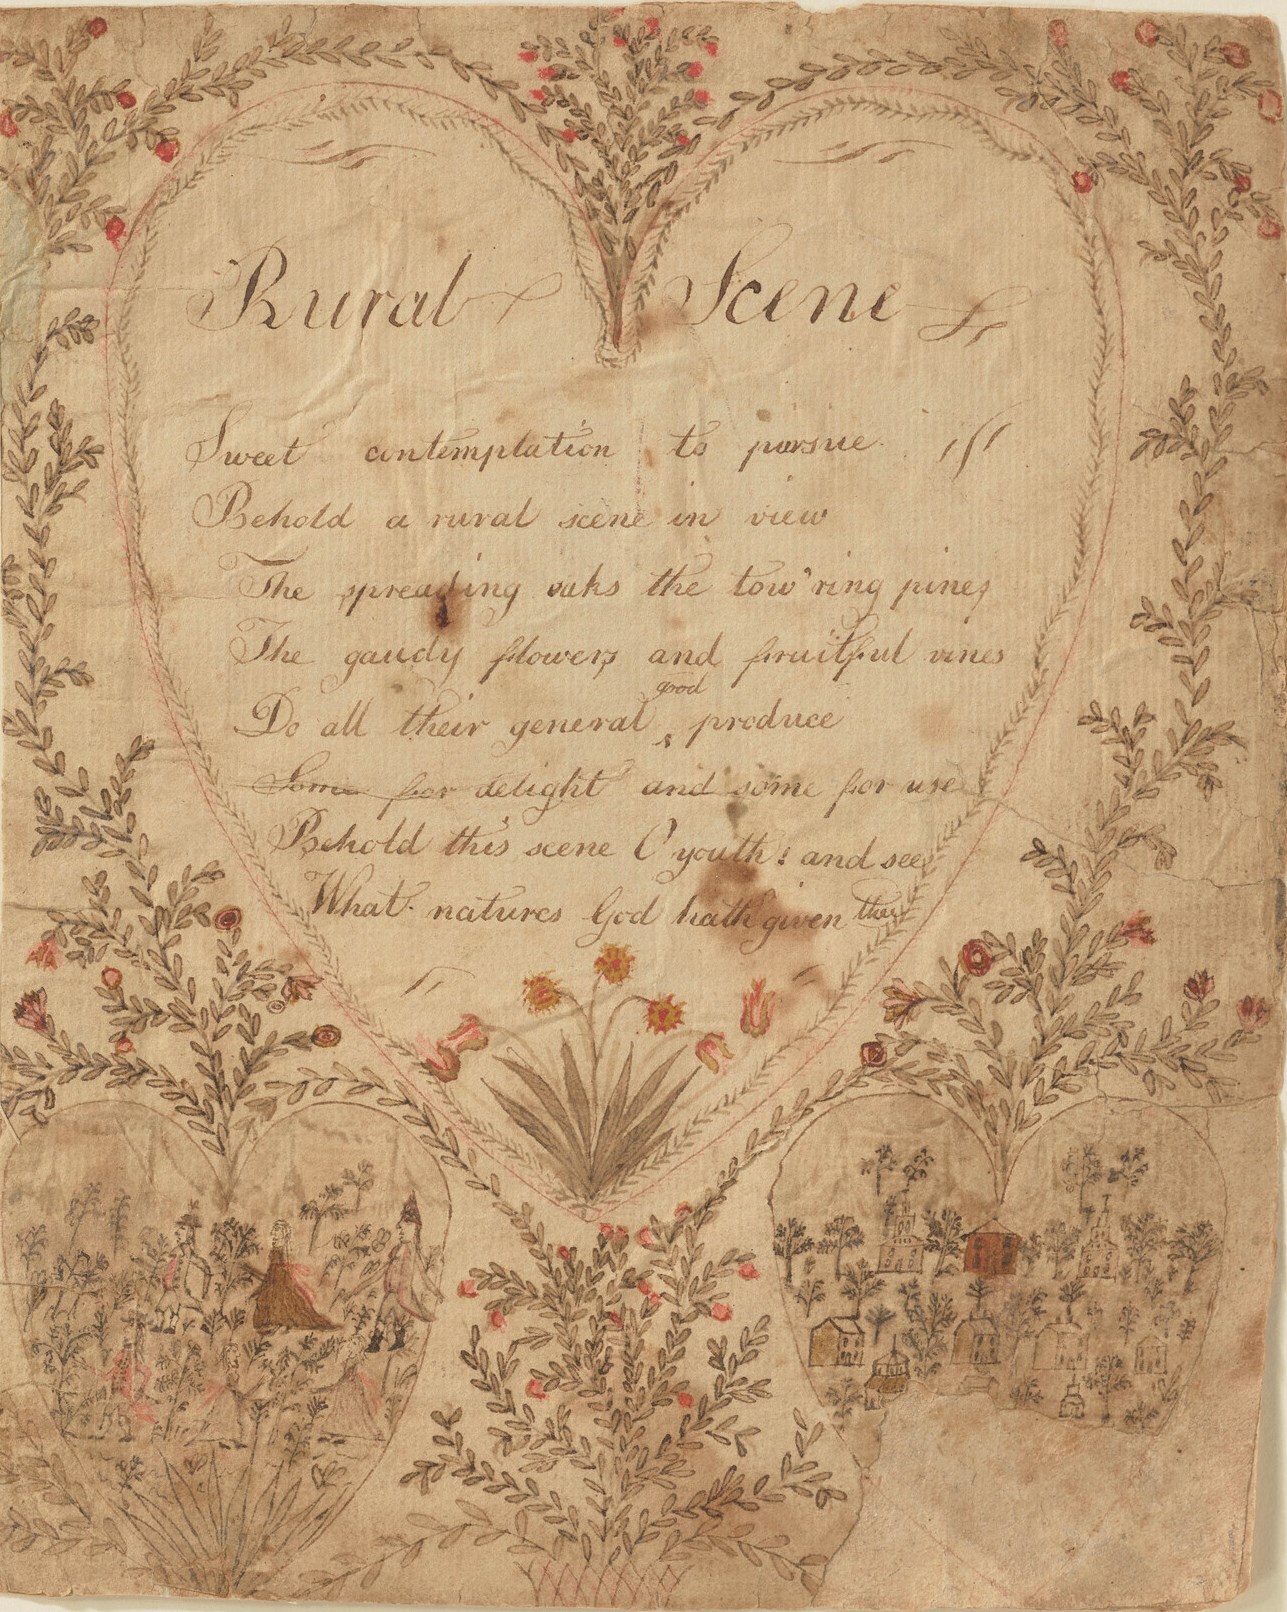 Rural Scene
Sweet contemplation to pursue
Behold a rural scene in view
The spreading oaks the tow'ring pines
The gaudy flowers and fruitful vines
good
Do all their general ‸ produce
Some for delight and some for use
Behold this scene O youth! and see
What natures God hath given thee